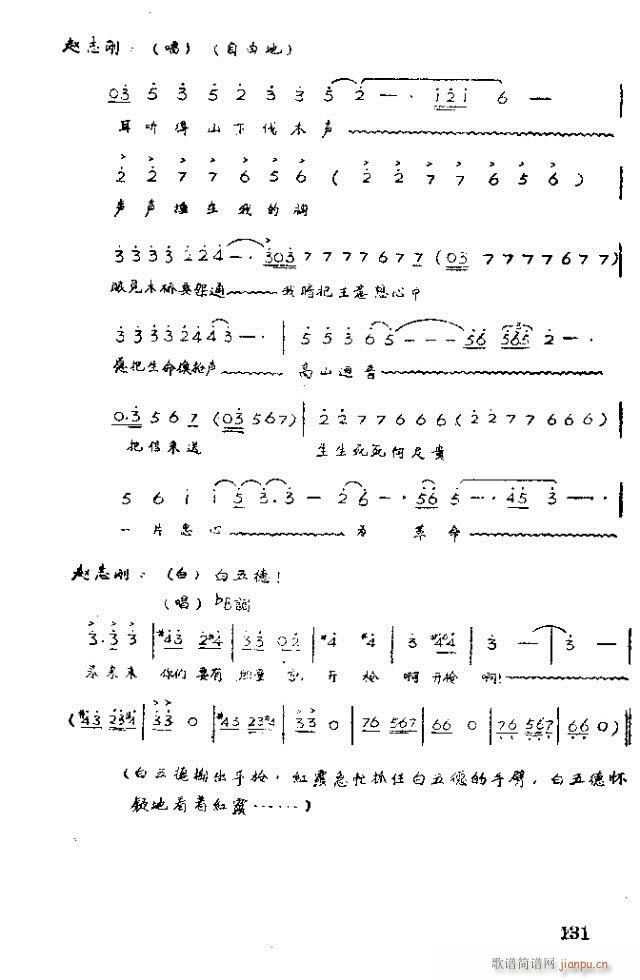 赵志刚：（唱）（自由地）
03 5 3 5 2 3 3 5 2 —· 121 6 —
耳听得山下伐木声
2 2 7 7 6 5 6 ( 2 2 7 7 6 5 6 )
声声撞在我的胸
3 3 3 3 2 2 4 —· 303 7 7 7 7 6 7 7 (03 7 7 7 7 6 7 7)
眼见木桥要架通 我時把王 想心中
3 3 3 3 2 4 4 3 —· 5 5 3 6 5 — — — 56 565 2 —·
愿把生命换枪声 高山迴音
0.3 5 6 7 (03 5 6 7) 2 2 7 7 6 6 6 (2 2 7 7 6 6 6)
把信来送 生生死死何足贵
5 6 i i 5 3.3 — 2 6 —· 56 5 —· 45 3 —·
一片忠心 为 革命
赵志刚：（白）白五德！
（唱）bE調
3.3 3 #43 2#4 3 02 #4 #4 3 #44 3 — 3 —
你们 要有 开 枪 啊 开枪 啊！
(#43 23#4 33 0 #43 23#4 33 0 76 567 66 0 76 567 66 0)
（白五德掏出手枪，紅霞急忙抓住白五德的手臂，白五德怀
疑地看着紅霞……）
131
歌谱简谱网 jianpu.cn